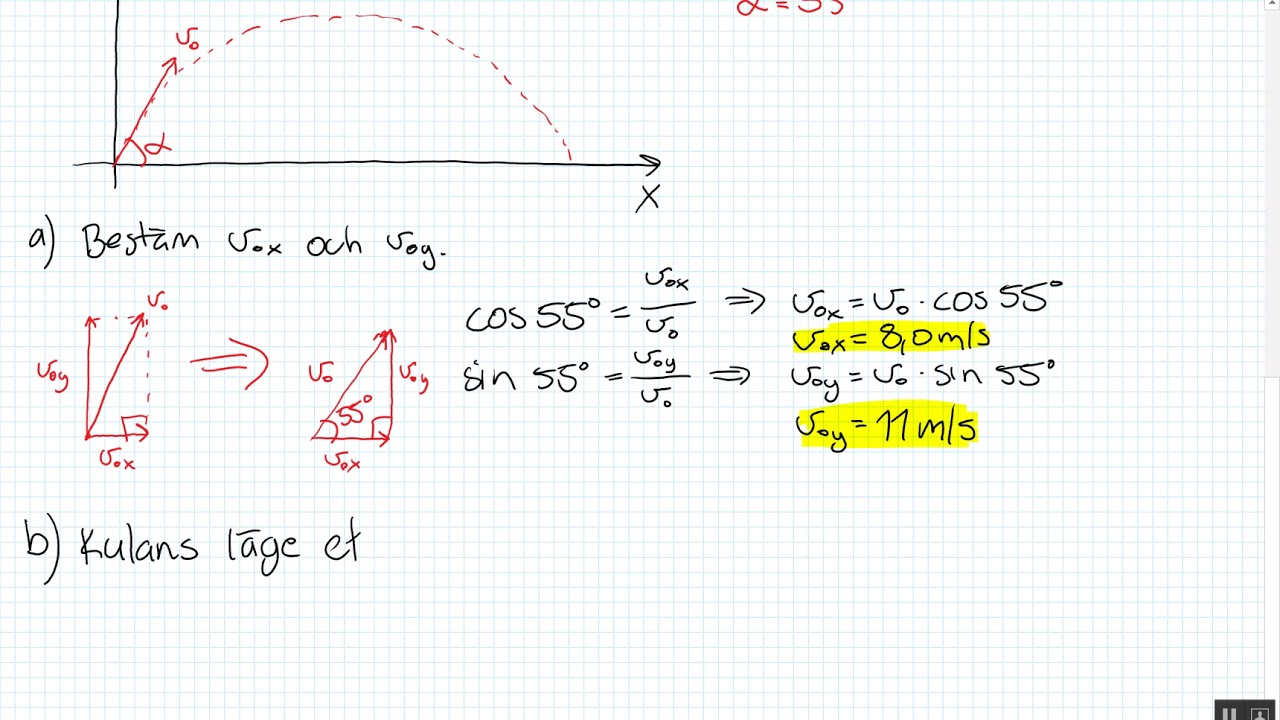 α = 55
v₀
α
X
a) Bestäm v₀ₓ och v₀y.
v₀
v₀y
v₀ₓ
⇒
v₀
55°
v₀y
v₀ₓ
cos 55° = v₀ₓ/v₀ ⇒ v₀ₓ = v₀ · cos 55°
v₀ₓ = 8,0 m/s
sin 55° = v₀y/v₀ ⇒ v₀y = v₀ · sin 55°
v₀y = 11 m/s
b) Kulans läge et